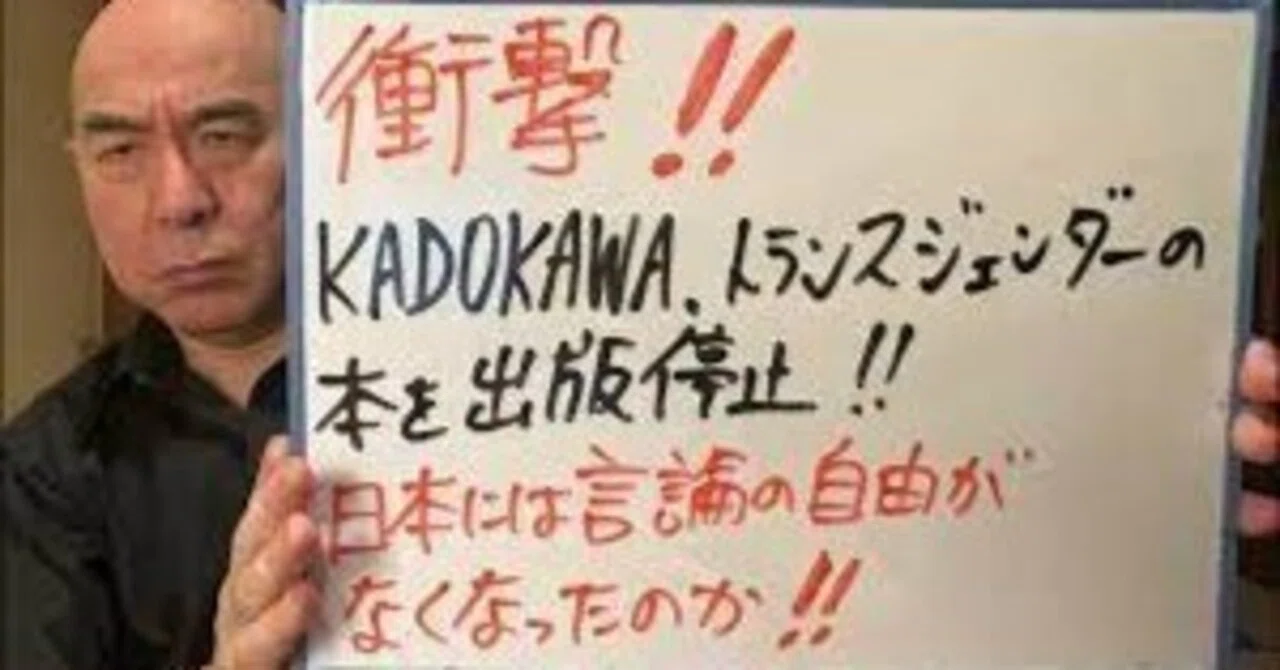 衝撃!!
KADOKAWA、トランスジェンダーの
本を出版停止!!
日本には言論の自由が
なくなったのか!!